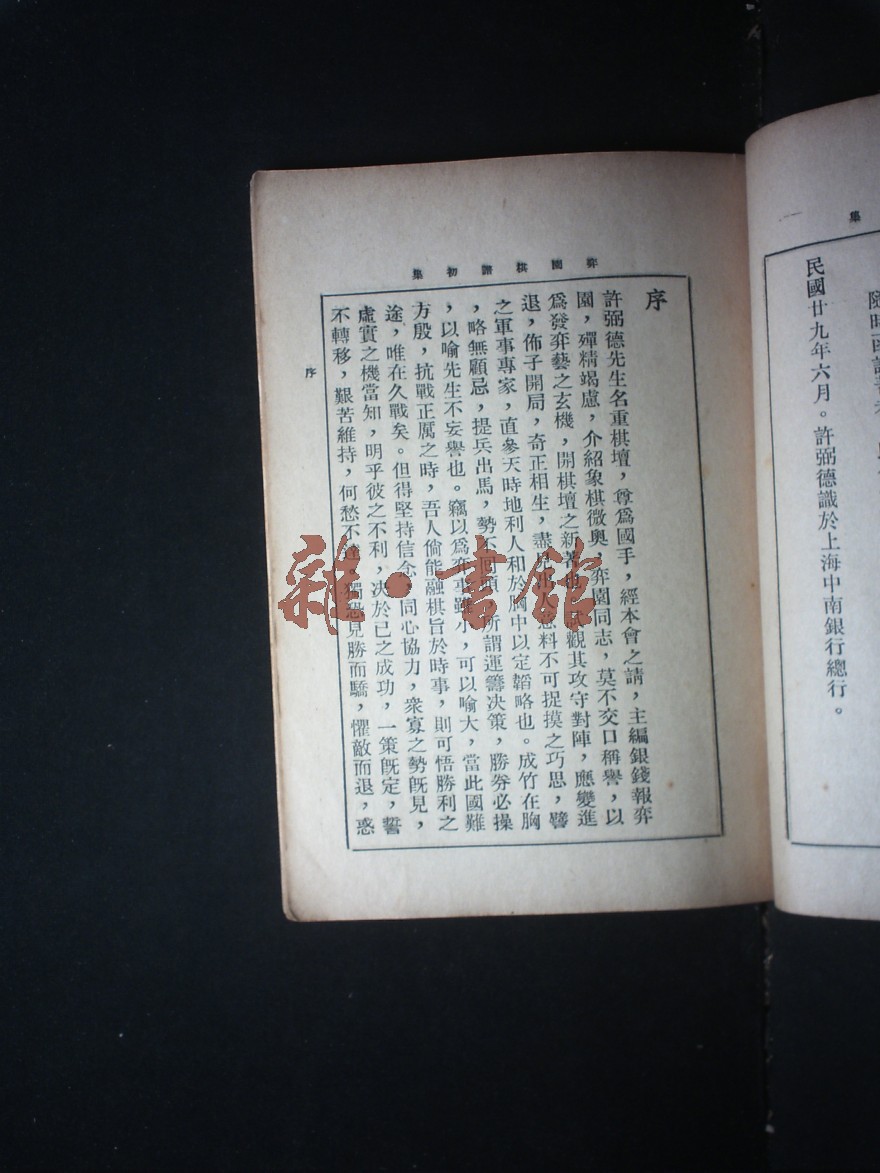 集
民國廿九年六月。許弼德識於上海中南銀行總行。
弈園棋譜初集
序
許弼德先生名重棋壇，尊爲國手，經本會之請，主編銀錢報弈
園，殫精竭慮，介紹象棋微奧，弈園同志，莫不交口稱譽，以
爲發弈藝之玄機，開棋壇之新著也。試觀其攻守對陣，應變進
退，佈子開局，奇正相生，盡見出人意料不可捉摸之巧思，譬
之軍事專家，直參天時地利人和於胸中以定韜略也。成竹在胸
，略無顧忌，提兵出馬，勢不回頭，所謂運籌决策，勝券必操
，以喻先生不妄譽也。竊以爲弈事雖小，可以喻大，當此國難
方殷，抗戰正厲之時，吾人倘能融棋旨於時事，則可悟勝利之
途，唯在久戰矣。但得堅持信念，同心協力，衆寡之勢旣見，
虛實之機當知，明乎彼之不利，决於已之成功，一策旣定，誓
不轉移，艱苦維持，何愁不達。獨恐見勝而驕，懼敵而退，惑
序
雜·書館